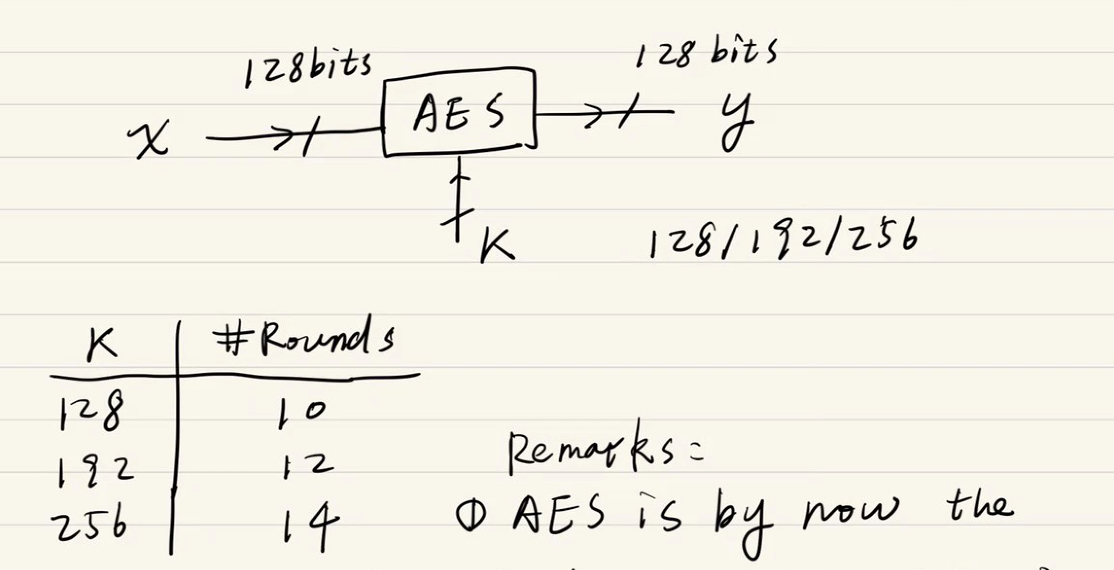 128bits
128 bits
x
AES
y
K
128/192/256
K #Rounds
128 10
192 12
256 14
Remarks:
① AES is by now the